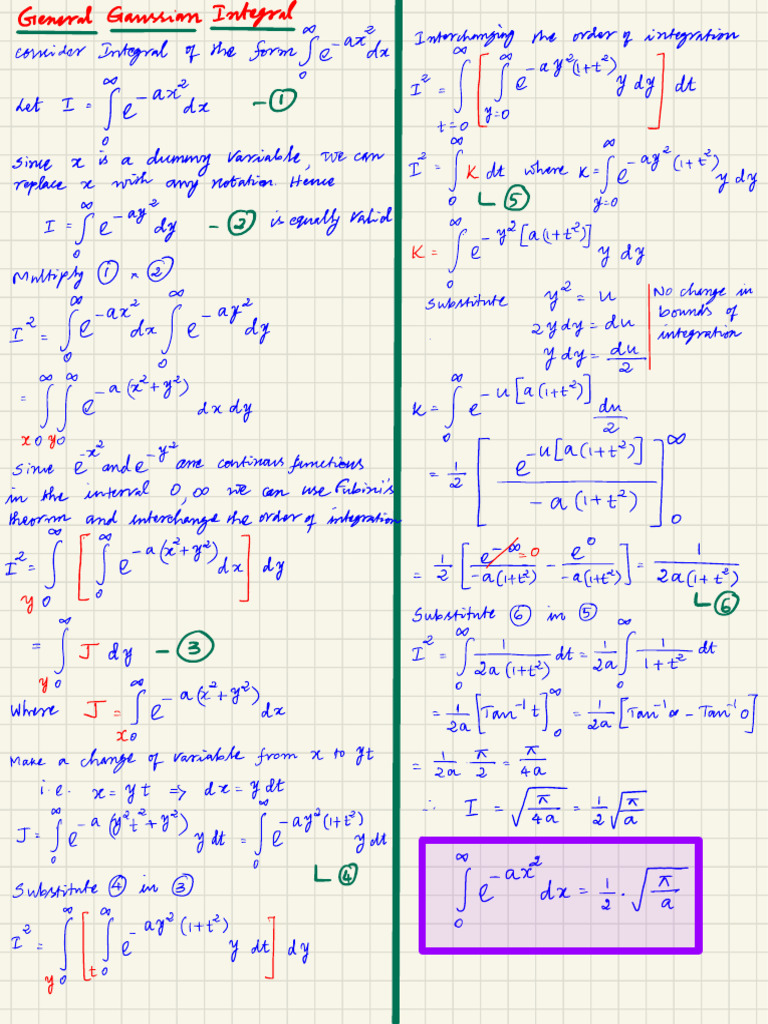 General Gaussian Integral
consider Integral of the form ∫₀^∞ e^(-ax²) dx
Let I = ∫₀^∞ e^(-ax²) dx - ①
Since x is a dummy variable, we can
replace x with any notation. Hence
I = ∫₀^∞ e^(-ay²) dy - ② is equally valid
Multiply ① × ②
I² = ∫₀^∞ e^(-ax²) dx ∫₀^∞ e^(-ay²) dy
= ∫_{x0}^∞ ∫_{y0}^∞ e^(-a(x²+y²)) dx dy
Since e^(-x²) and e^(-y²) are continous functions
in the interval 0, ∞ we can use Fubini's
theorm and interchange the order of integration
I² = ∫_{y0}^∞ [ ∫₀^∞ e^(-a(x²+y²)) dx ] dy
= ∫_{y0}^∞ J dy - ③
Where J = ∫_{x0}^∞ e^(-a(x²+y²)) dx
Make a change of variable from x to yt
i.e. x = yt ⇒ dx = y dt
J = ∫₀^∞ e^(-a(y²t²+y²)) y dt = ∫₀^∞ e^(-ay²(1+t²)) y dt
④
Substitute ④ in ③
I² = ∫_{y0}^∞ [ ∫_{t0}^∞ e^(-ay²(1+t²)) y dt ] dy
Interchanging the order of integration
I² = ∫_{t=0}^∞ [ ∫_{y=0}^∞ e^(-ay²(1+t²)) y dy ] dt
I² = ∫₀^∞ K dt where K = ∫_{y=0}^∞ e^(-ay²(1+t²)) y dy
⑤
K = ∫₀^∞ e^(-y²[a(1+t²)]) y dy
Substitute y² = u
2y dy = du
y dy = du/2
No change in
bounds of
integration
K = ∫₀^∞ e^(-u[a(1+t²)]) du/2
= 1/2 [ e^(-u[a(1+t²)]) / -a(1+t²) ]₀^∞
= 1/2 [ e^(-∞)=0 / -a(1+t²) - e⁰ / -a(1+t²) ] = 1 / 2a(1+t²)
⑥
Substitute ⑥ in ⑤
I² = ∫₀^∞ 1/(2a(1+t²)) dt = 1/2a ∫₀^∞ 1/(1+t²) dt
= 1/2a [Tan⁻¹ t]₀^∞ = 1/2a [Tan⁻¹∞ - Tan⁻¹0]
= 1/2a π/2 = π/4a
∴ I = √(π/4a) = 1/2 √(π/a)
∫₀^∞ e^(-ax²) dx = 1/2 · √(π/a)